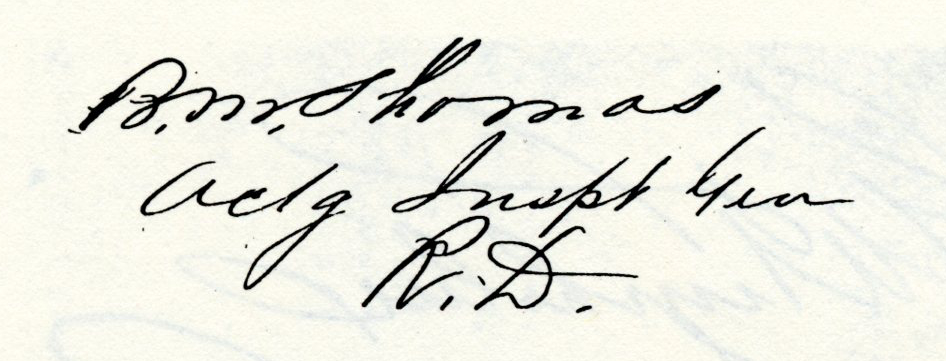 B.M. Thomas
Actg Inspt Gen
R.D.